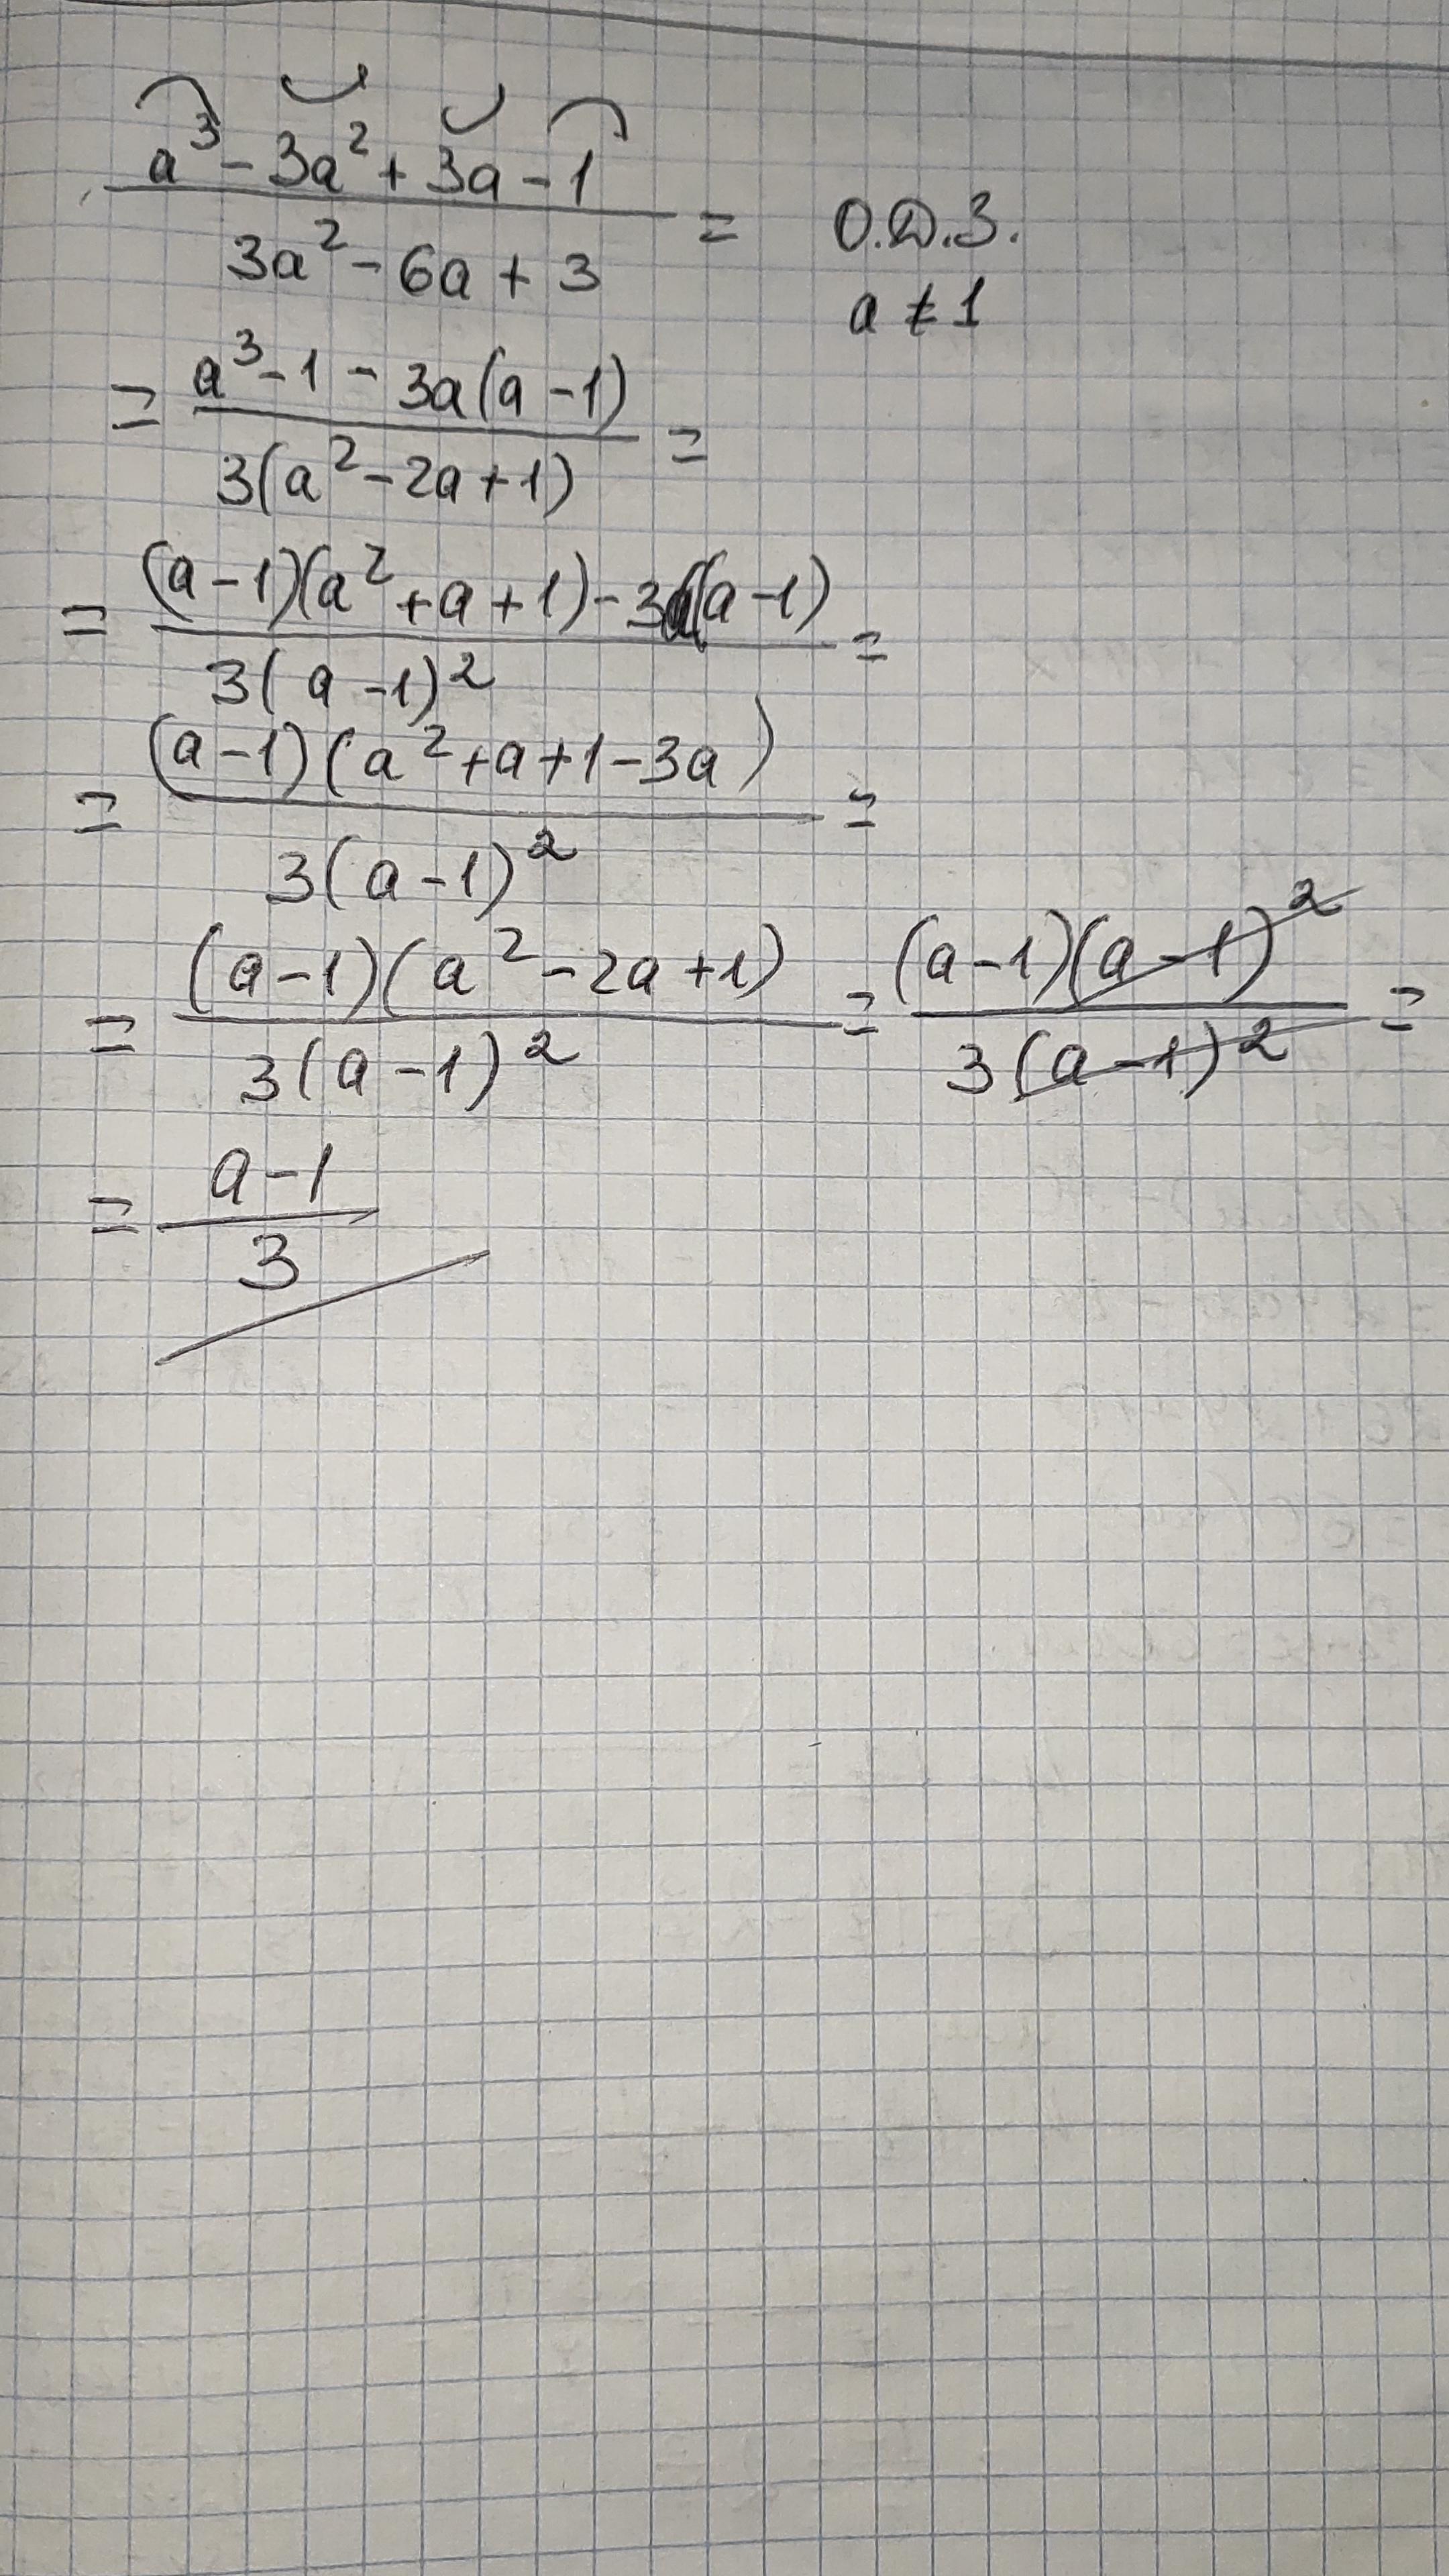 a³ - 3a² + 3a - 1
3a² - 6a + 3
=
О.Д.З.
a ≠ 1
= a³ - 1 - 3a(a - 1)
3(a² - 2a + 1)
=
= (a - 1)(a² + a + 1) - 3a(a - 1)
3(a - 1)²
=
= (a - 1)(a² + a + 1 - 3a)
3(a - 1)²
=
= (a - 1)(a² - 2a + 1)
3(a - 1)²
= (a - 1)(a - 1)²
3(a - 1)²
=
= a - 1
3